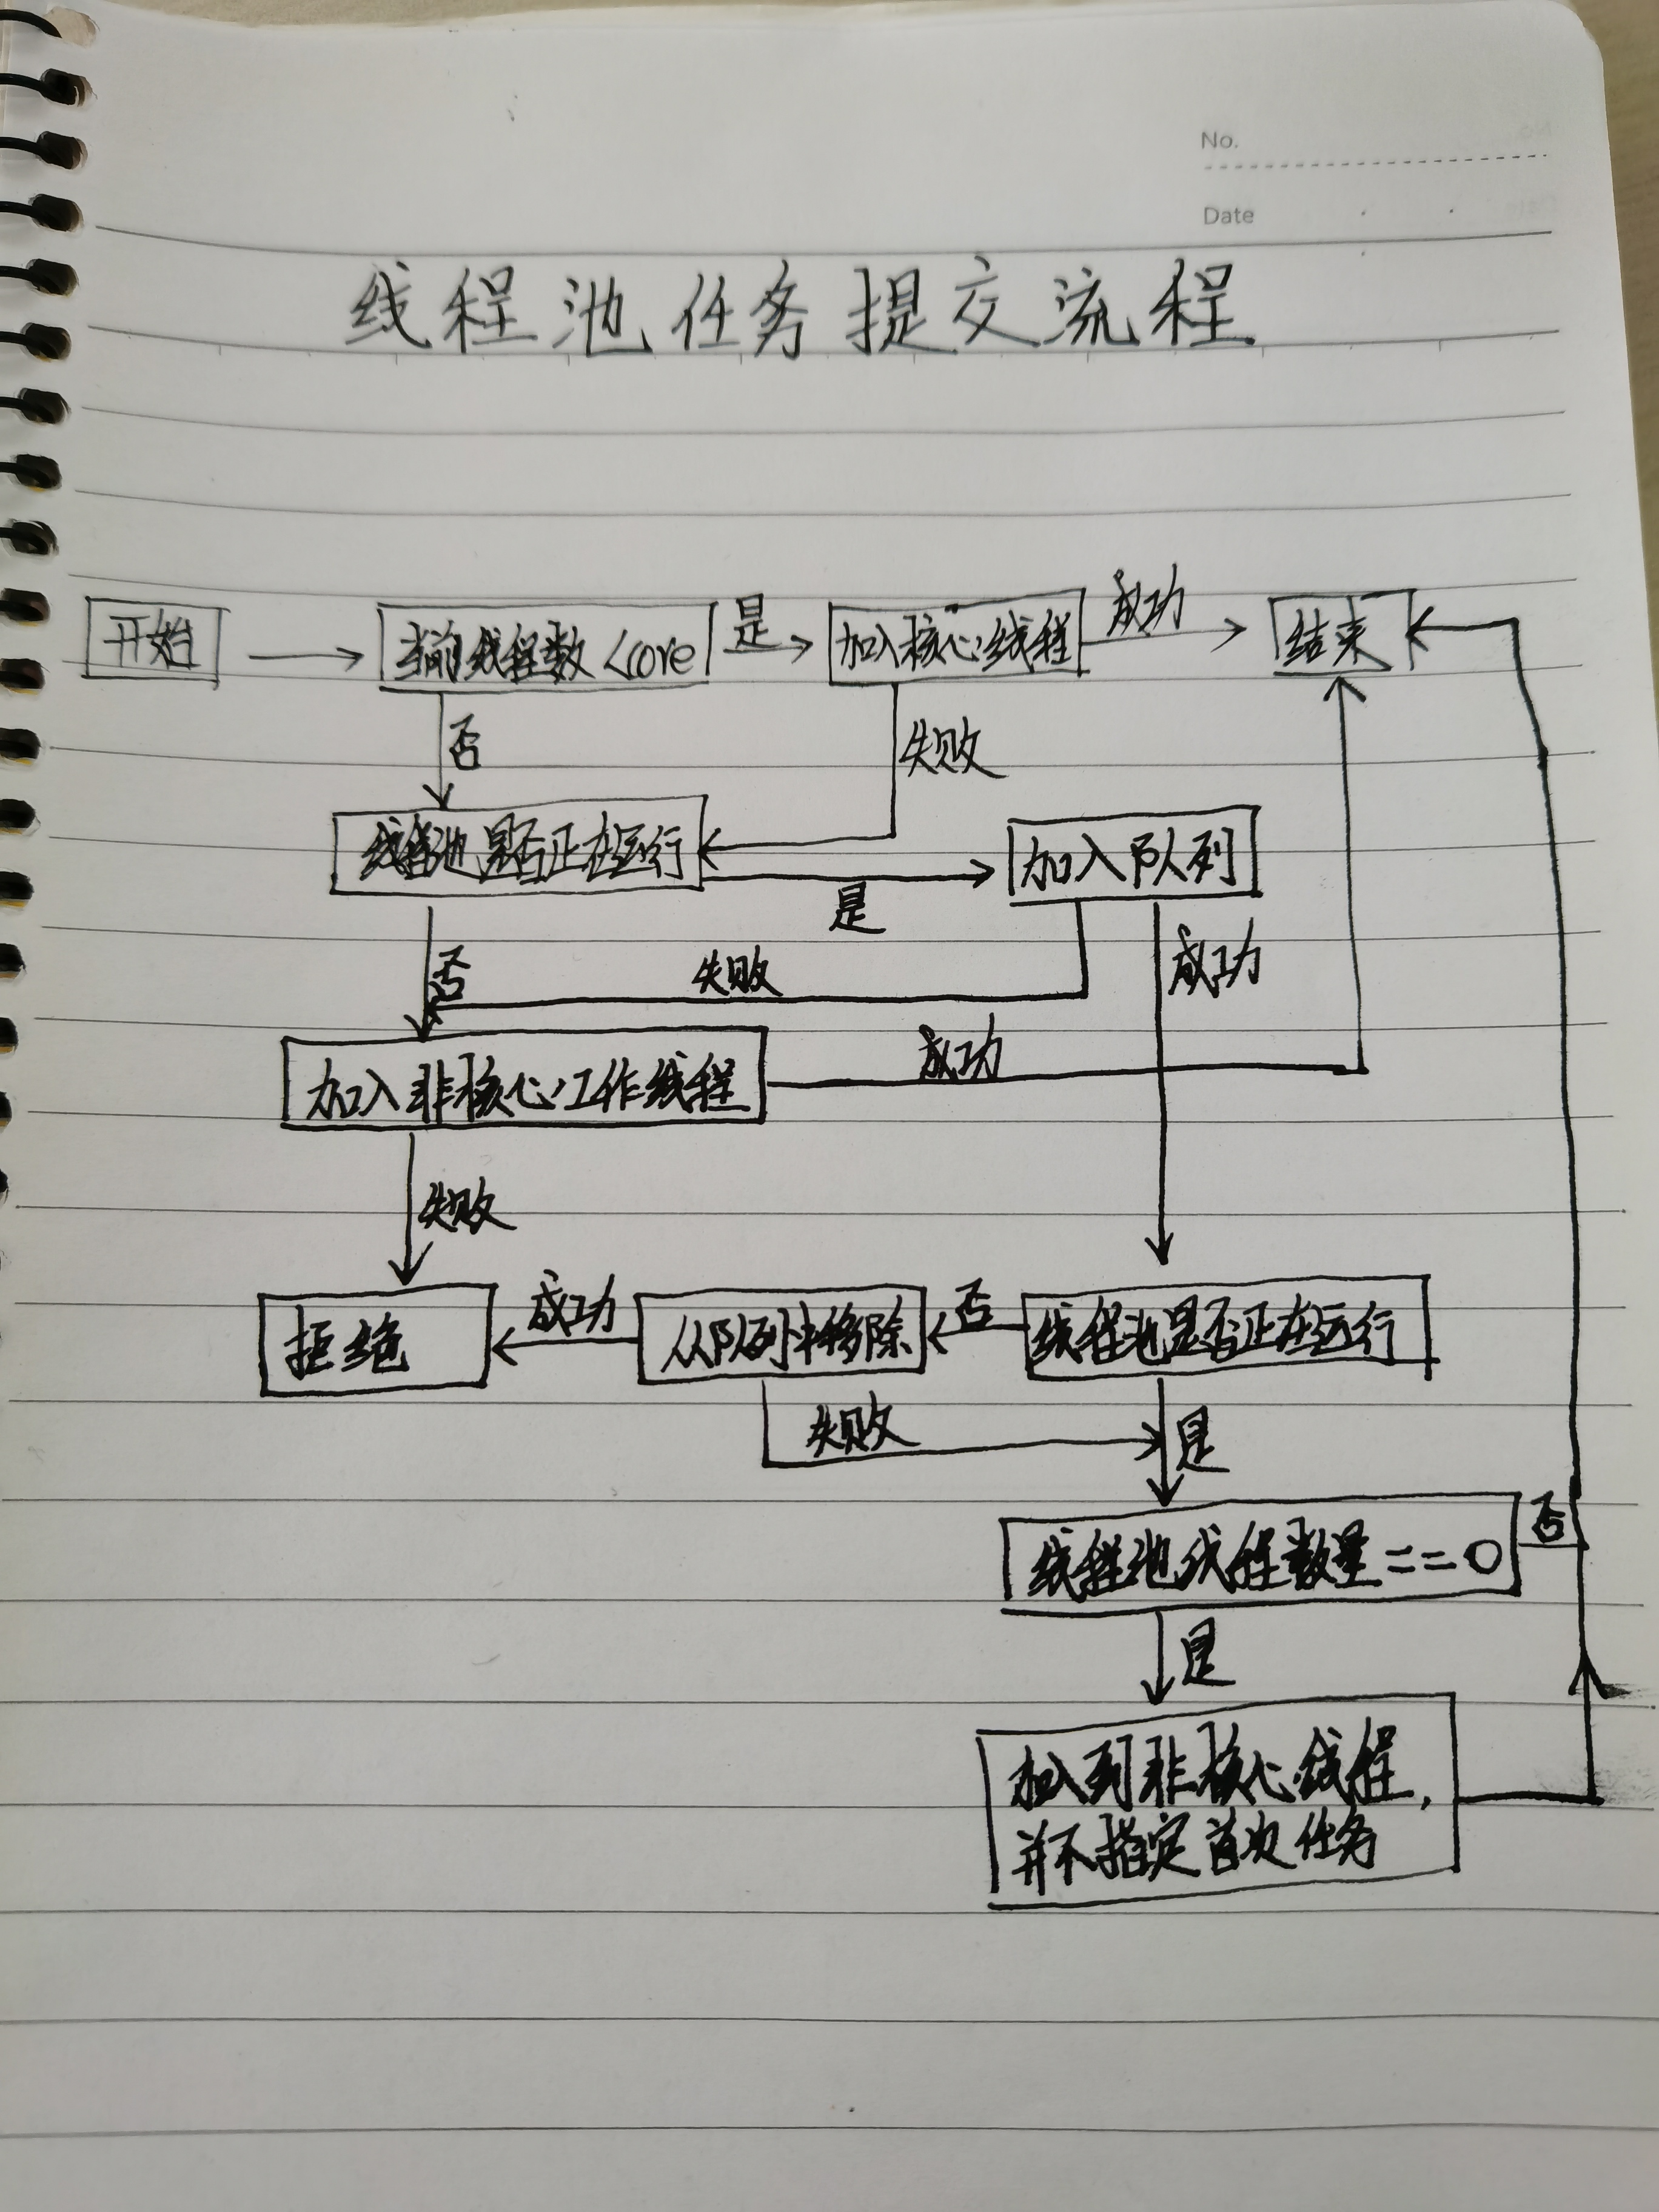 No.
Date
线程池任务提交流程
开始
当前线程数<core
是
加入核心线程
成功
结束
否
失败
线程池是否正在运行
是
加入队列
否
失败
成功
加入非核心工作线程
成功
失败
拒绝
成功
从队列中移除
否
线程池是否正在运行
失败
是
线程池线程数量==0
否
是
加入到非核心线程,
并不指定首次任务